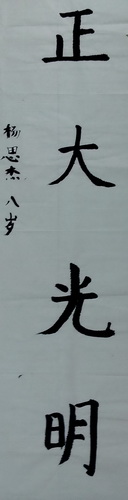 正大光明
杨思杰 八岁